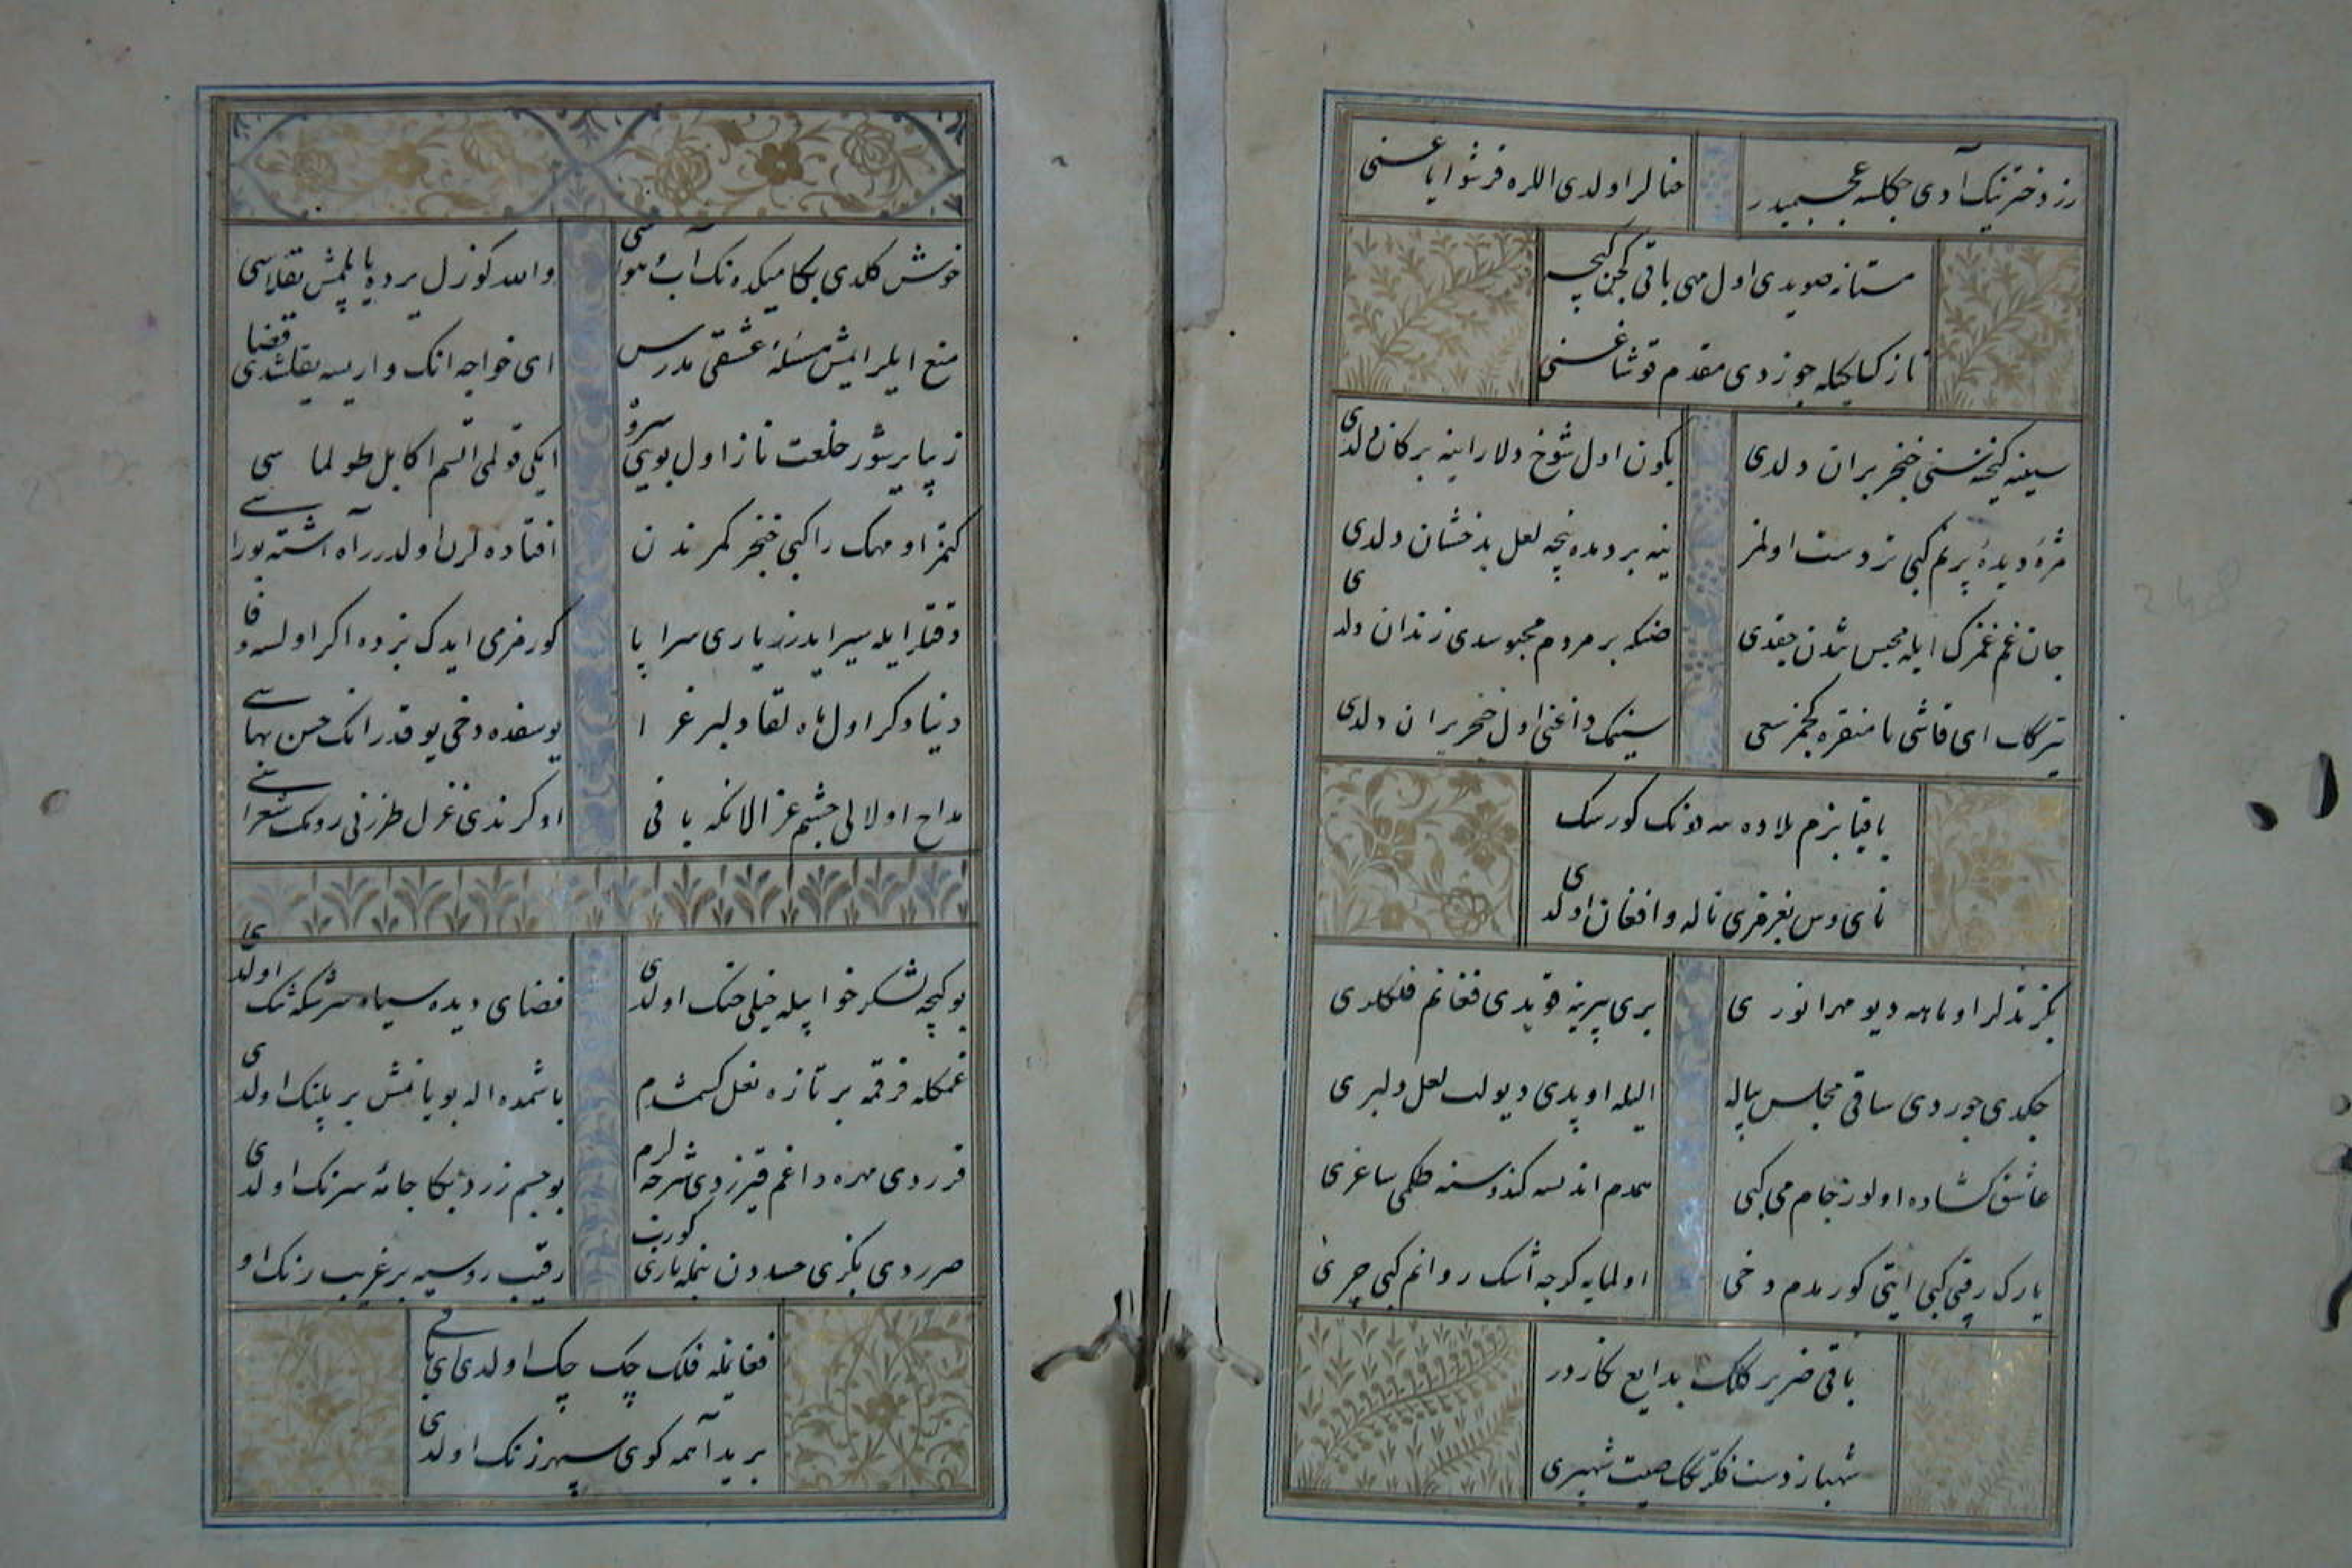 رز دخترینک آدی چکلسه عجبمیدر
خنالر اولدی اللره قرشو ایاغنی
مستانه صویدی اول مهی باقی کچن کیجه
ناز کیلکیله جوزدی مقدم قوشاغنی
سینه کیجه سنی خنجر بران دلدی
بکون اول شوخ دلارا ینه بر کان دلدی
مژۀ دیدۀ پرنم کبی تردست اولمز
ینه بر دمده نیجه لعل بدخشان دلدی
جان غم غمزک ایله محبس تندن چقدی
صنکه بر مردم محبوسدی زندان دلدی
تیرکات ای قاشی یا منقره کچمز سعی
سینمک داغنی اول خنجر بران دلدی
باقیا بزم بلاده سه دونک کورسک
نای وس بغرمزی ناله و افغان اولدی
بکزتدلر او ماهه دیو مهر انوری
بری بیرینه قویدی فغانم فلکلری
چکدی جوردی ساقی مجلس پیاله
الیله اوپدی دیو لب لعل دلبری
عاشق کشاده اولور جام می کبی
همدم اندنسه کندوسنه طکمی ساغری
یارک رقیق کبی ایتی کورمدم دخی
اولمایه کرچه اشک روانم کبی جری
باقی ضریر کلک بدایع نکارور
شهباز دست فکرتکک صیت شهپری
خوش کلدی بکا میکده نک آب و هواسی
والله کوزل یرده یاپلمش یقلاسی
منع ایلر ایمش مسئلۀ عشقی مدرس
ای خواجه انک واریسه یقلشدی قضاسی
زیبا یرشور خلعت ناز اول بویی سروه
ایکی قولمی اتسم اکا بل طولماسی
کتمز او مهک راکبی خنجر کمرندن
افتاده لرن اولدرر آه اشته بوراسی
دقتلر ایله سیر ایدرز یاری سراپا
کورمزمی ایدک بزده اکر اولسه وفاسی
دنیا دکر اول ماه لقا دلبر غرا
یوسفده دخی یوقدر انک حسن بهاسی
مداح اولالی چشم غزالانکه باقی
اوکرندی غزل طرزنی رومک شعراسی
بو کیجه لشکر خوابیله خیلی جنک اولدی
فضای دیده سیاه سرشکه تنک اولدی
غمکله فرقمه بر تازه نعل کسمشدم
باشمده اله بویانمش بر پلنک اولدی
قرردی مهره داغم قیزردی شرحه لرم
بو جسم زرد بکا جامۀ سرنک اولدی
صرردی بکزی حسددن بنمله یاری کورب
رقیب روسیه بر غریب رنک او
فغانیله فلک چک چک اولدی ای باقی
برید آهمه کوی سپهر زنک اولدی